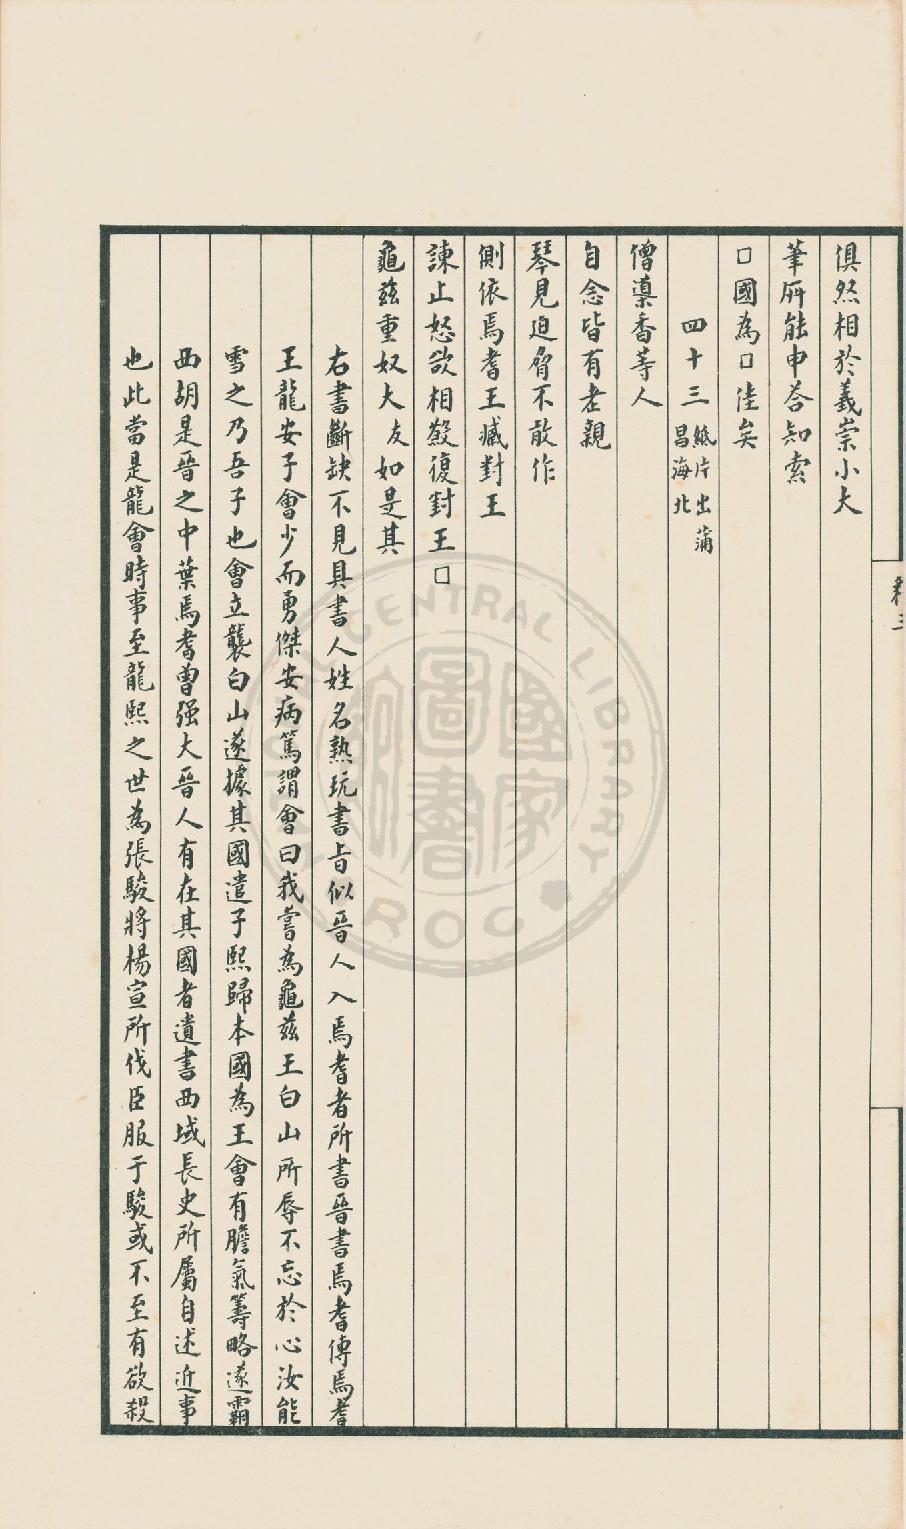 俱然相於義崇小大
筆所能申答知索
□國為□佳矣
四十三 紙片出蒲昌海北
僧稟香等人
自念皆有老親
琴見迫脅不敢作
側依焉耆王臧對王
諫止怒欲相殺復對王□
龜茲重奴大友如是其
右書斷缺不見具書人姓名熟玩書旨似晉人入焉耆者所書晉書焉耆傳焉耆
王龍安子會少而勇傑安病篤謂會曰我嘗為龜茲王白山所辱不忘於心汝能
雪之乃吾子也會立襲白山遂據其國遣子熙歸本國為王會有膽氣籌略遂霸
西胡是晉之中葉焉耆曾强大晉人有在其國者遺書西域長史所屬自述近事
也此當是龍會時事至龍熙之世為張駿將楊宣所伐臣服于駿或不至有欲殺
NATIONAL CENTRAL LIBRARY
ROC
國家圖書館